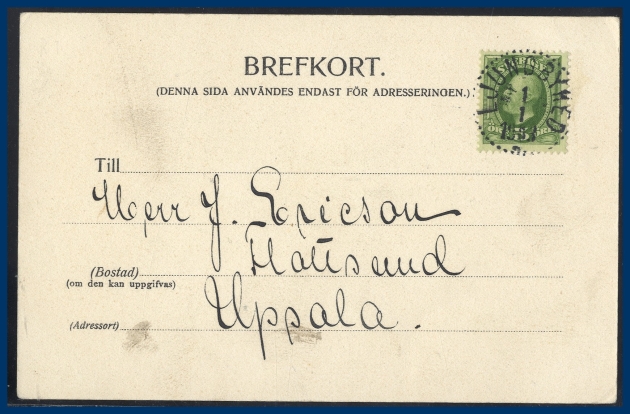 BREFKORT.
(DENNA SIDA ANVÄNDES ENDAST FÖR ADRESSERINGEN.)
1
1
Till
Herr J. Ericson
Flottsund
(Bostad)
(om den kan uppgifvas)
Uppsala.
(Adressort)